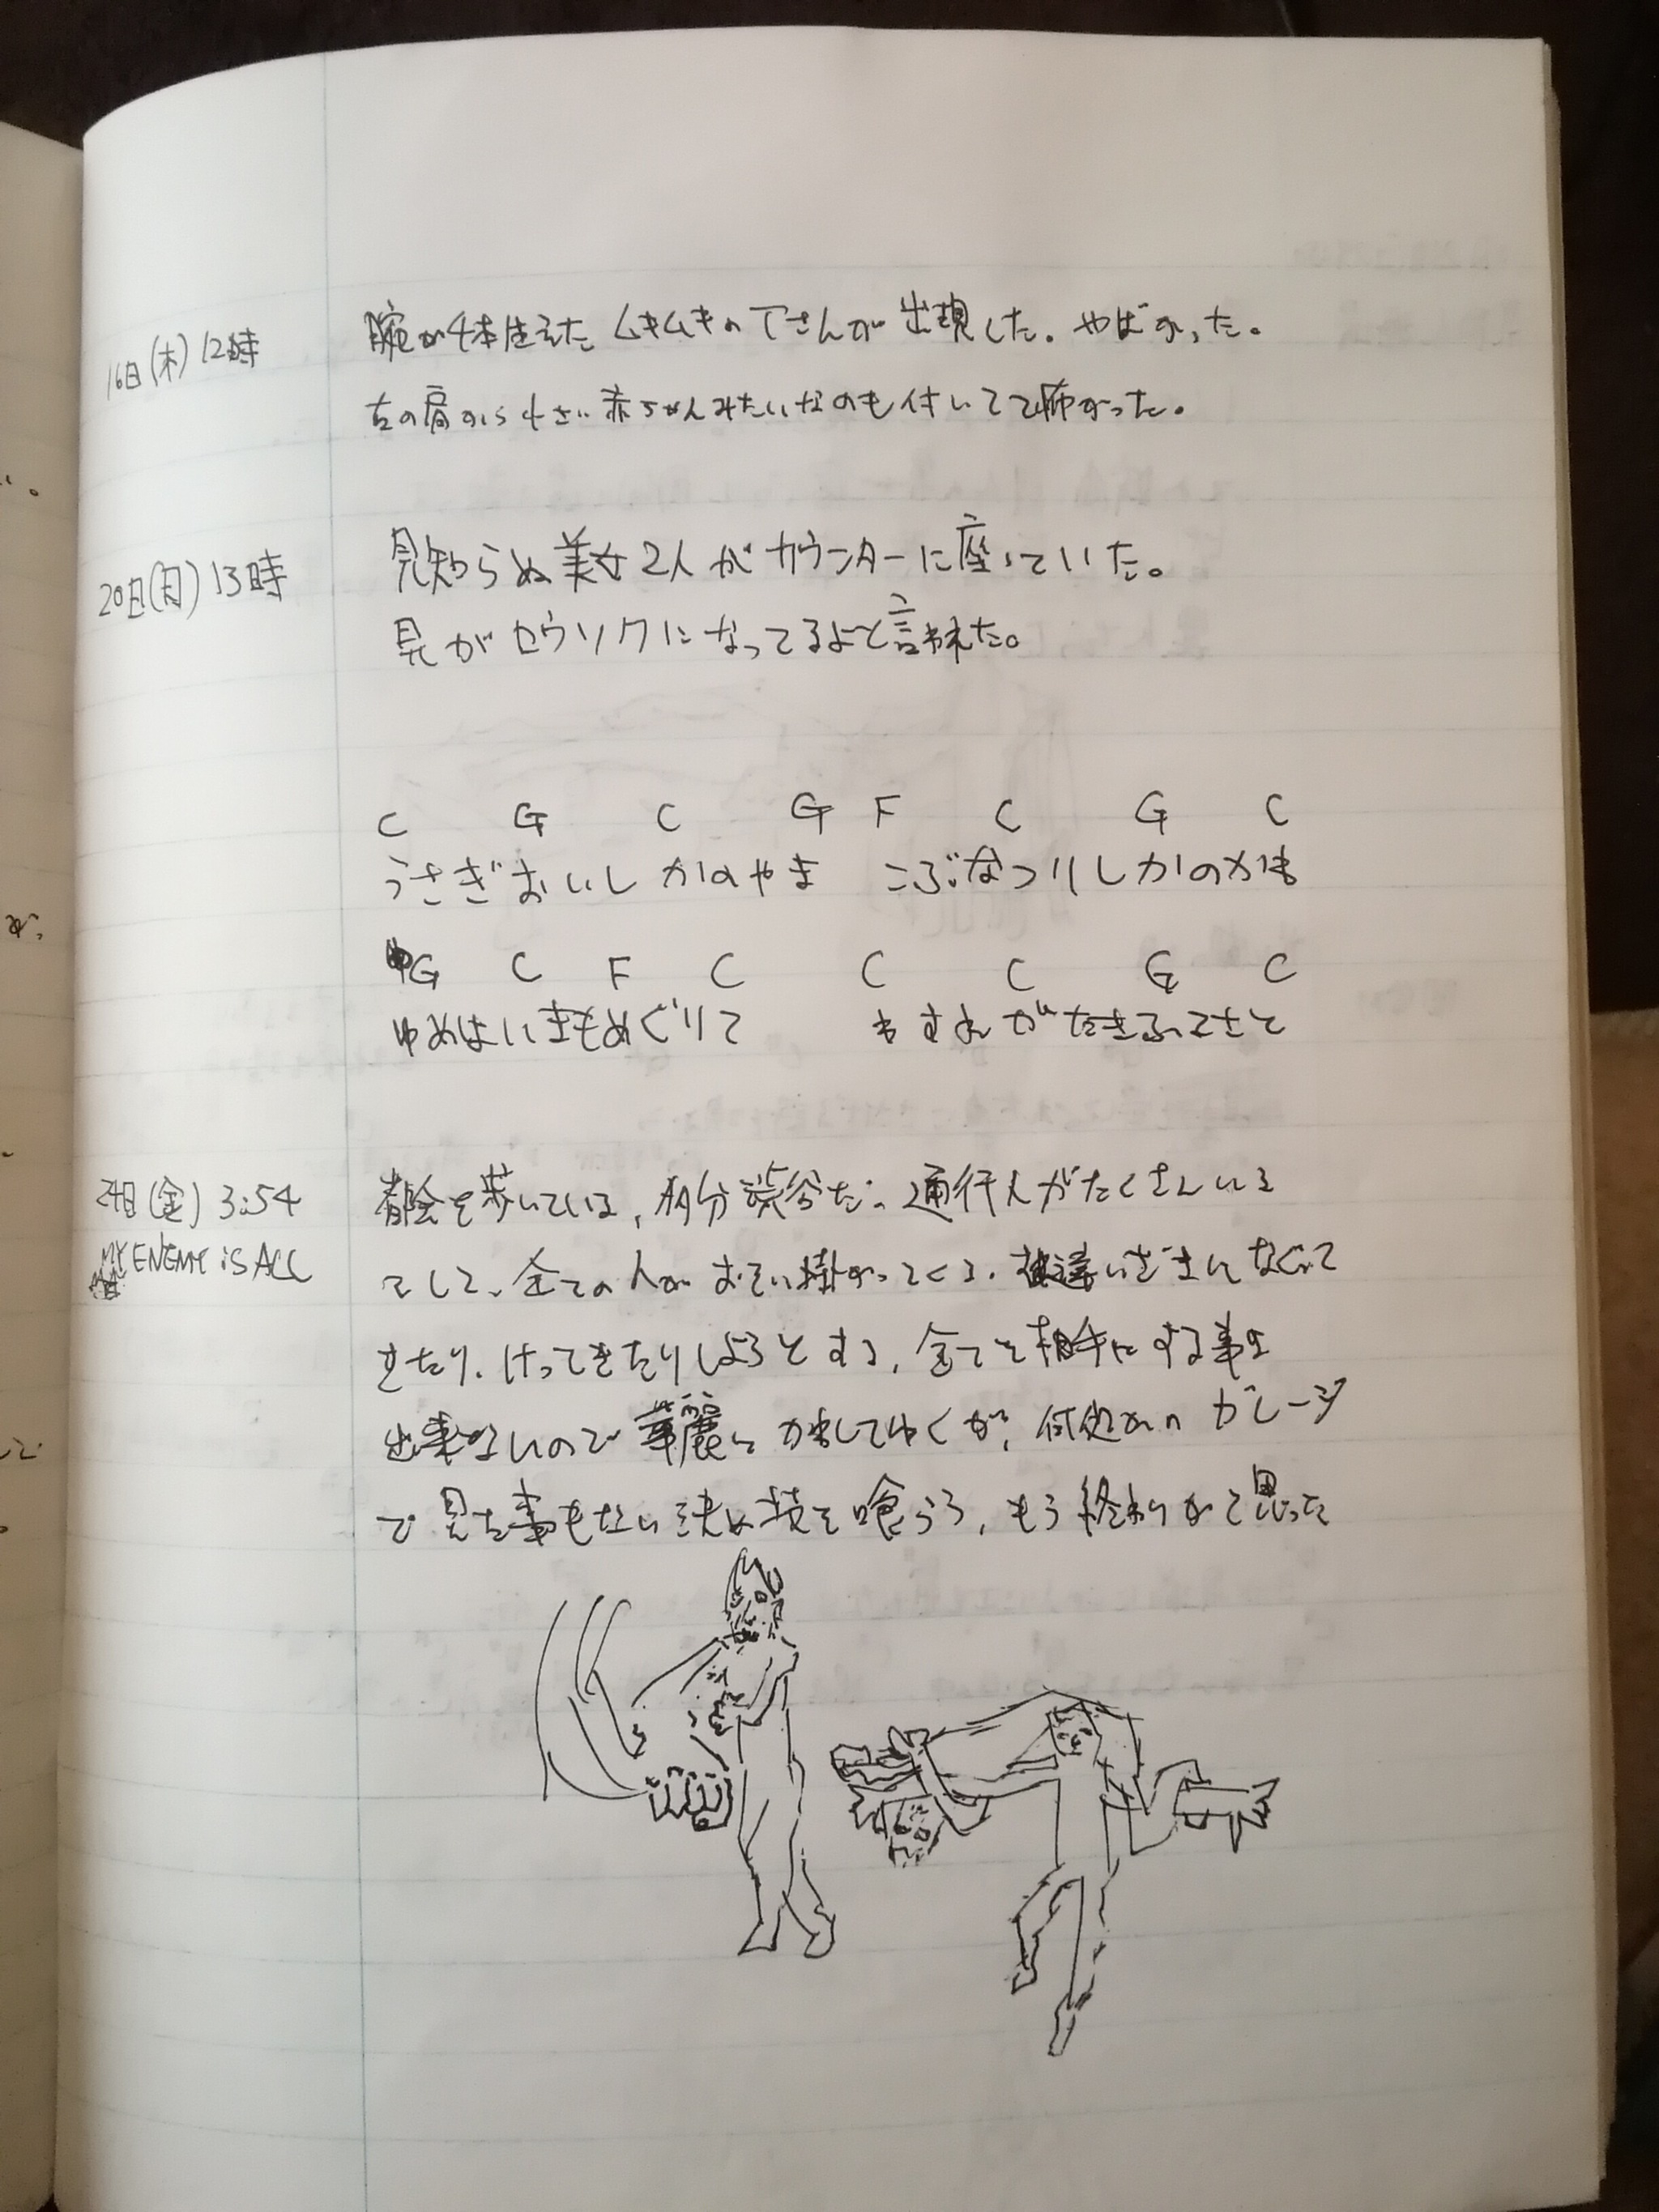 16日(木) 12時
腕が4本生えた ムキムキの Tさんが 出現した。やばかった。
左の肩から小さい赤ちゃんみたいなのも付いてて怖かった。
20日(月) 13時
見知らぬ美女2人がカウンターに座っていた。
兄がロウソクになってるよと言われた。
C G C G F C G C
うさぎおいし かのやま こぶなつりしかのかわ
G C F C C C G C
ゆめはいまもめぐりて わすれがたきふるさと
24日(金) 3:54
MY ENEMY iS ALL
都会を歩いている、多分渋谷だ。通行人がたくさんいる
そして、全ての人がおそい掛かってくる。すれ違いざまになぐって
きたり、けってきたりしようとする、全てを相手にする事は
出来ないので華麗にかわしてゆくが、何処かのガレージ
で見た事もない決め技を喰らう、もう終わりかと思った